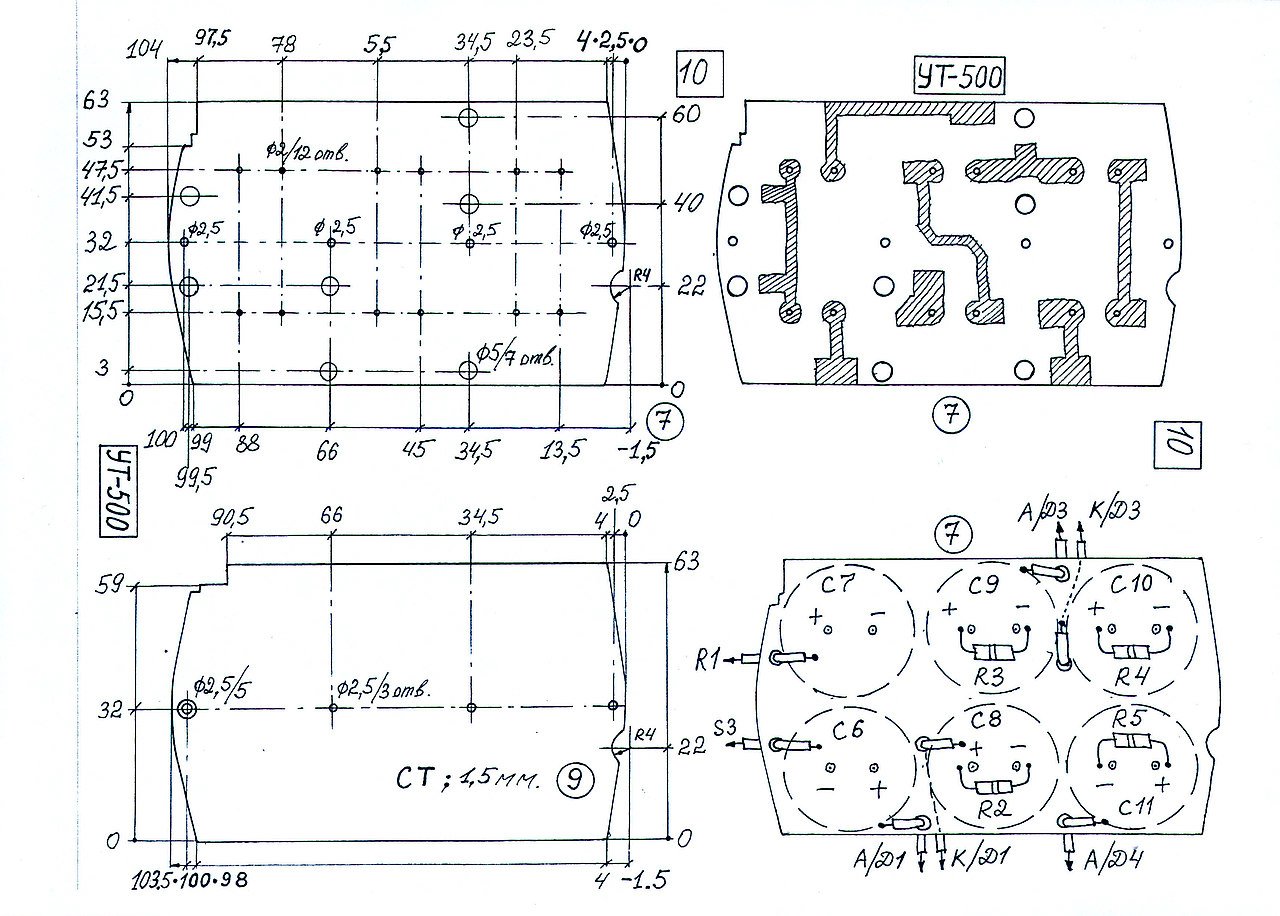 104 97,5 78 55 34,5 23,5 4·2,5·0
63
53
47,5
41,5
32
21,5
15,5
3
0
ϕ2/12 отв.
ϕ2,5 ϕ 2,5 ϕ 2,5 ϕ2,5
R4
ϕ5/7 отв.
60
40
22
0
100 99 88 66 45 34,5 13,5 -1,5
99,5
7
10
УТ-500
7
УТ-500
90,5 66 34,5 4 2,5 0
59
32
0
ϕ2,5/5 ϕ2,5/3 отв.
R4
СТ ; 1,5 мм. 9
63
22
0
103.5·100·98 4 -1.5
10
7
А/Д3 К/Д3
C7 C9 C10
+ - + - + -
R1 R3 R4
S3 C6 C8 R5
- + + - - +
R2 C11
А/Д1 К/Д1 А/Д4